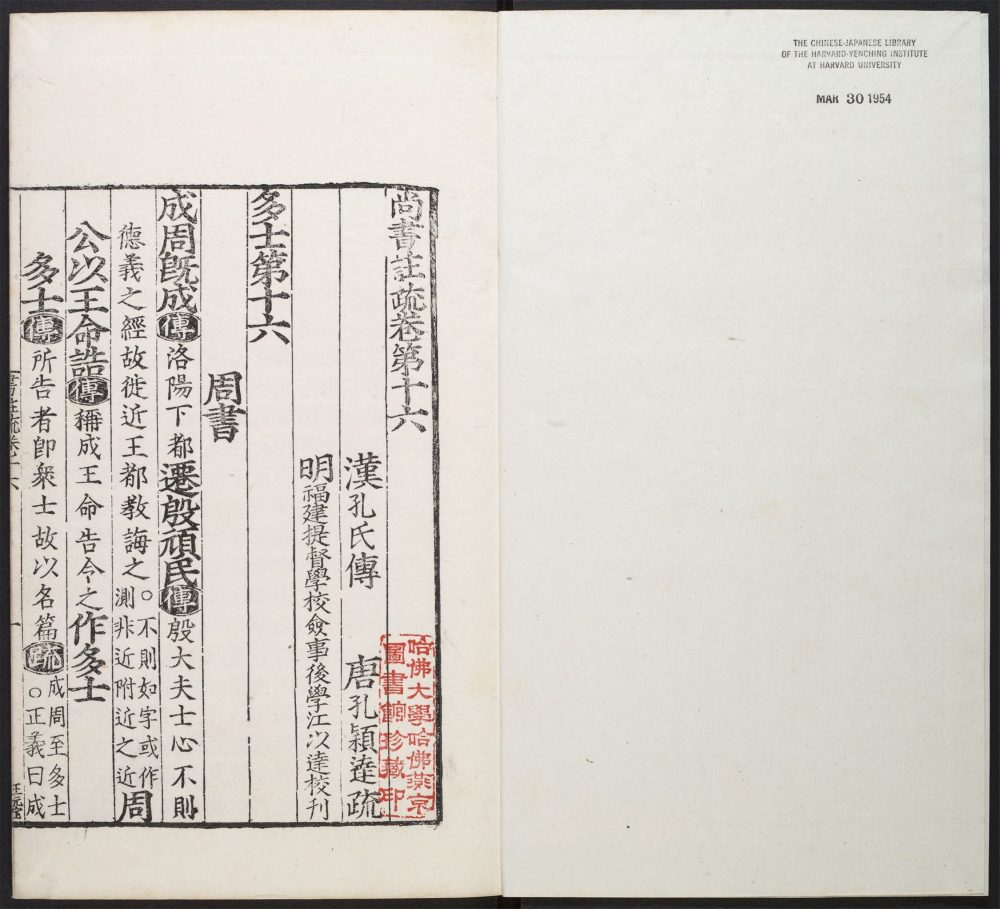 THE CHINESE-JAPANESE LIBRARY
OF THE HARVARD-YENCHING INSTITUTE
AT HARVARD UNIVERSITY
MAR 30 1954
尚書註疏卷第十六
漢孔氏傳 唐孔穎達疏
明福建提督學校僉事後學江以達校刊
哈佛大學哈佛燕京
圖書館珍藏印
多士第十六
周書
成周旣成傳洛陽下都遷殷頑民傳殷大夫士心不則
德義之經故徙近王都教誨之○不則如字或作測非近附近之近周
公以王命誥傳稱成王命告令之作多士
多士傳所告者卽衆士故以名篇疏成周至多士○正義曰成
書註疏卷十六
一